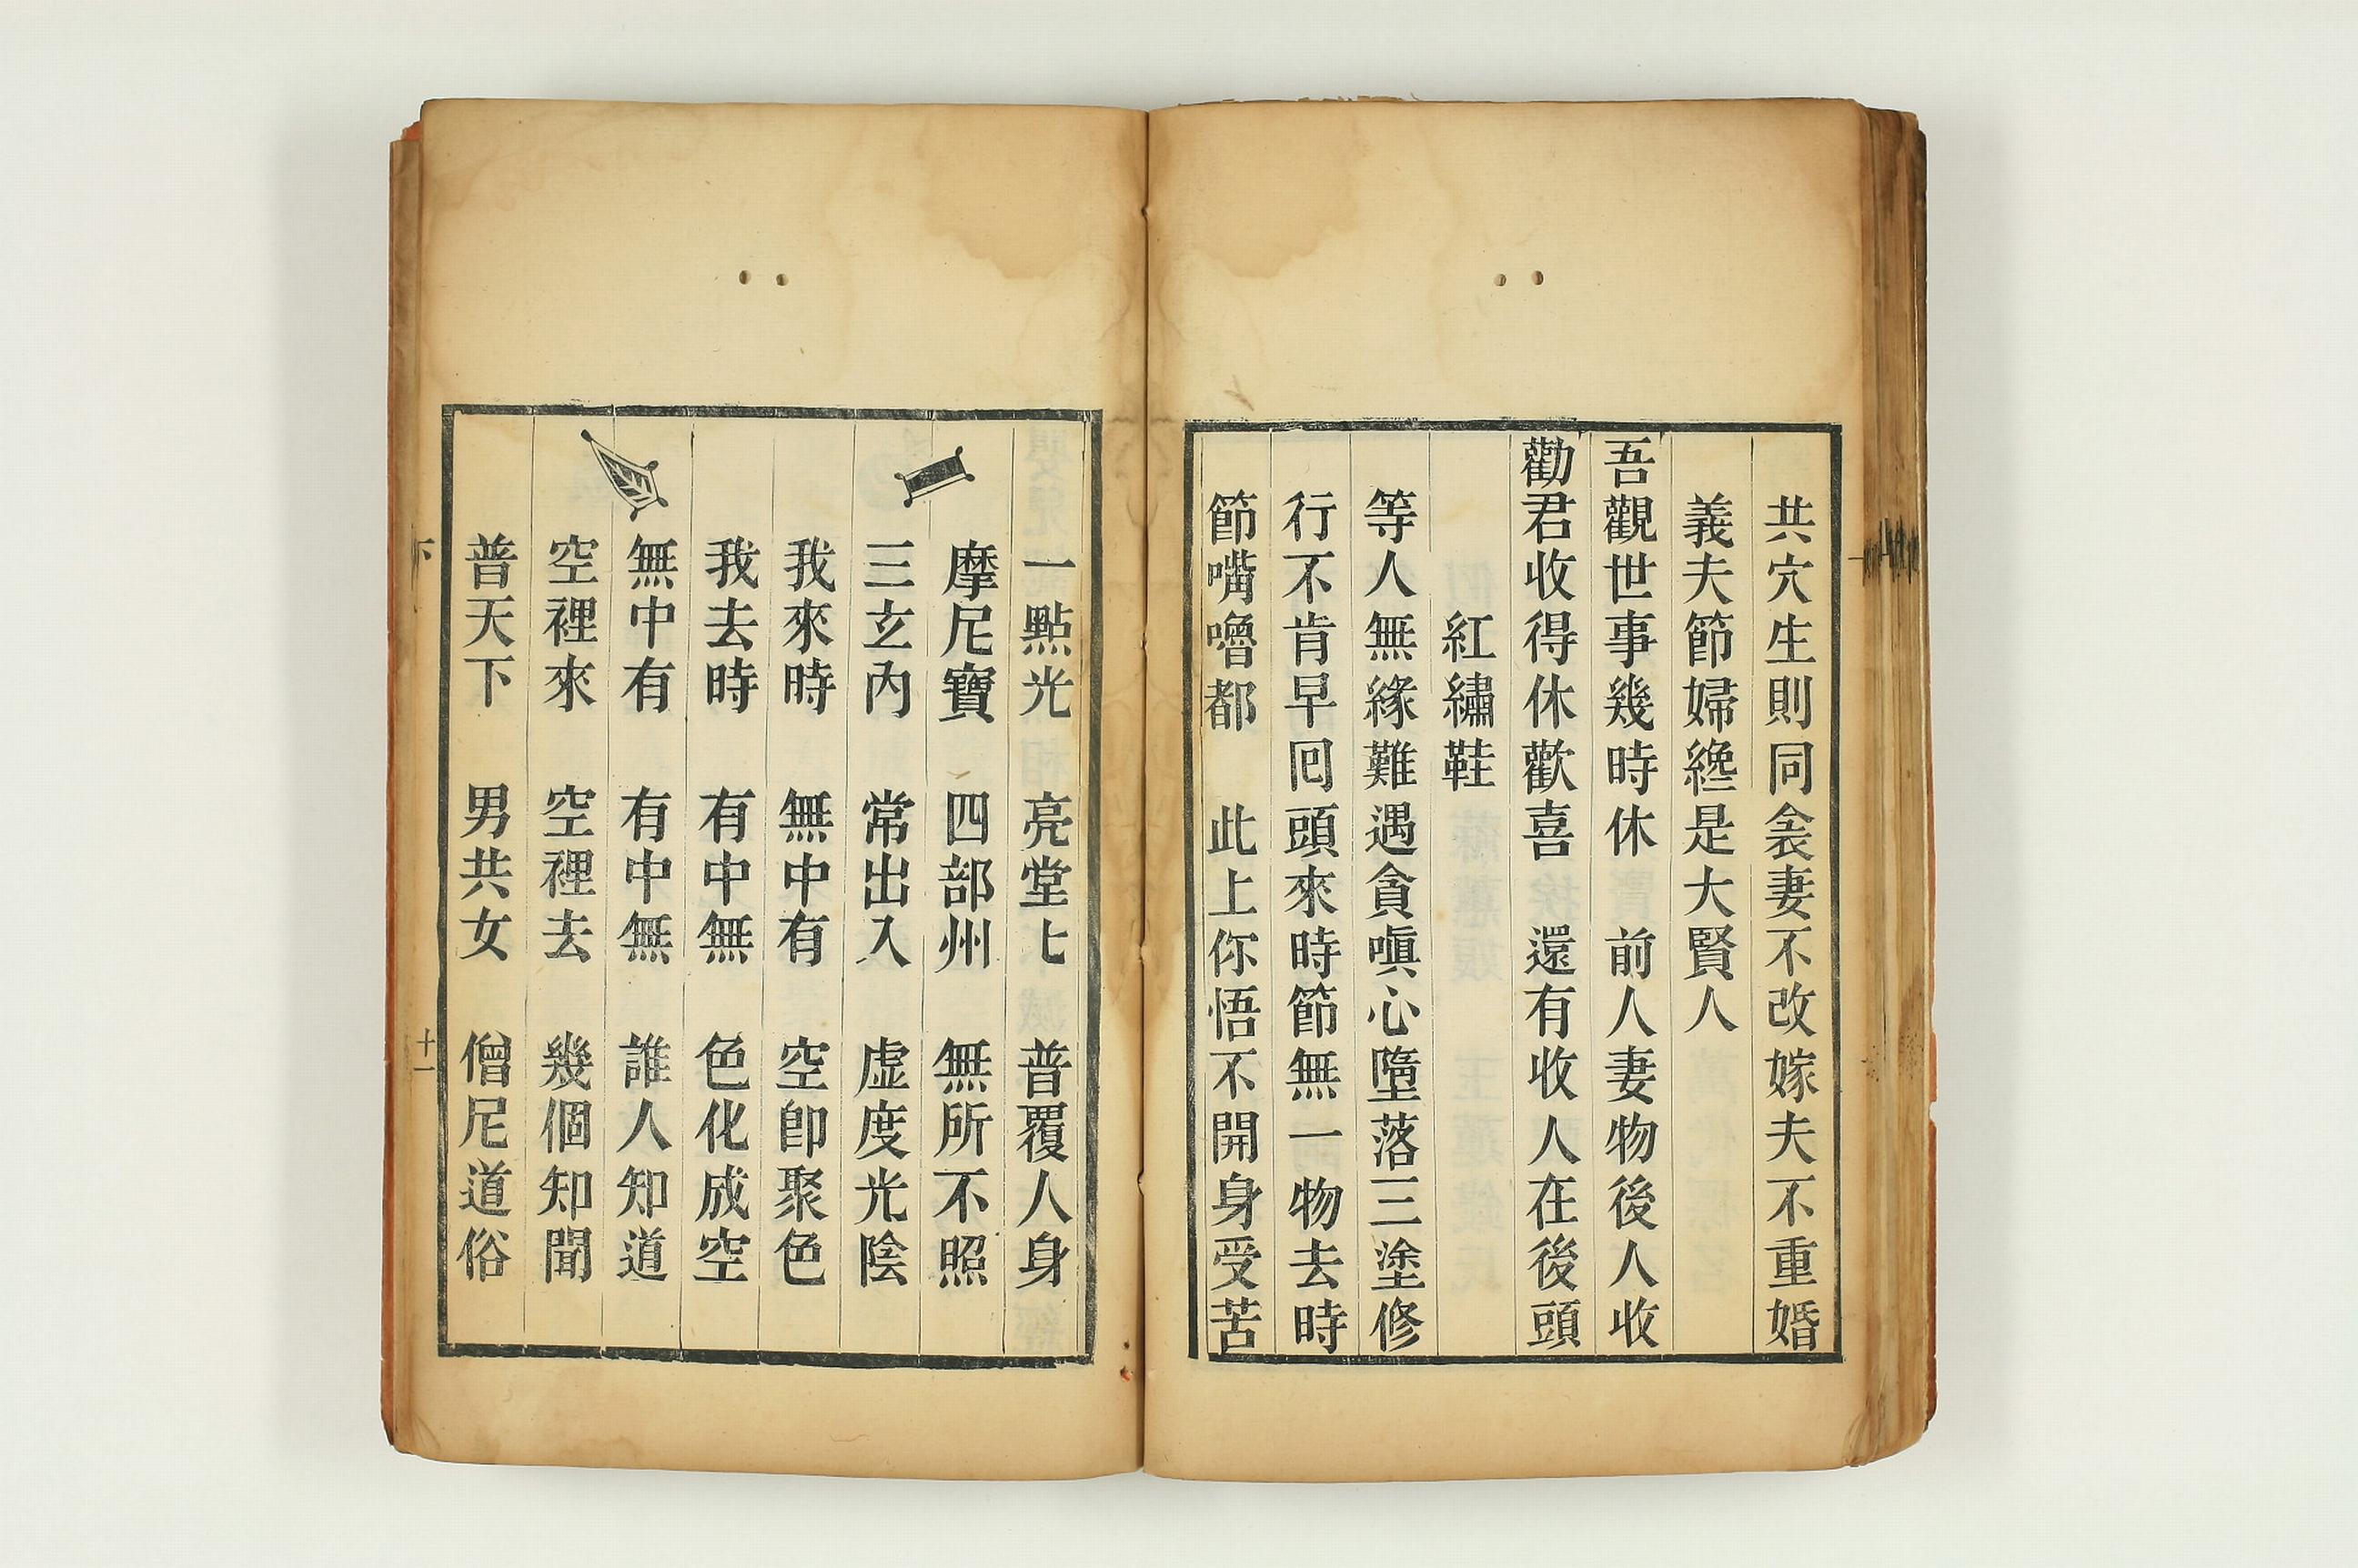 共穴生則同衾妻不改嫁夫不重婚
義夫節婦纔是大賢人
吾觀世事幾時休　前人妻物後人收
勸君收得休歡喜　還有收人在後頭
紅繡鞋
等人無緣難遇貪嗔心墮落三塗修
行不肯早囘頭來時節無一物去時
節嘴嚕都　此上你悟不開身受苦
一點光　亮堂七　普覆人身
摩尼寶　四部州　無所不照
三玄內　常出入　虛度光陰
我來時　無中有　空卽聚色
我去時　有中無　色化成空
無中有　有中無　誰人知道
空裡來　空裡去　幾個知聞
普天下　男共女　僧尼道俗
下　十一